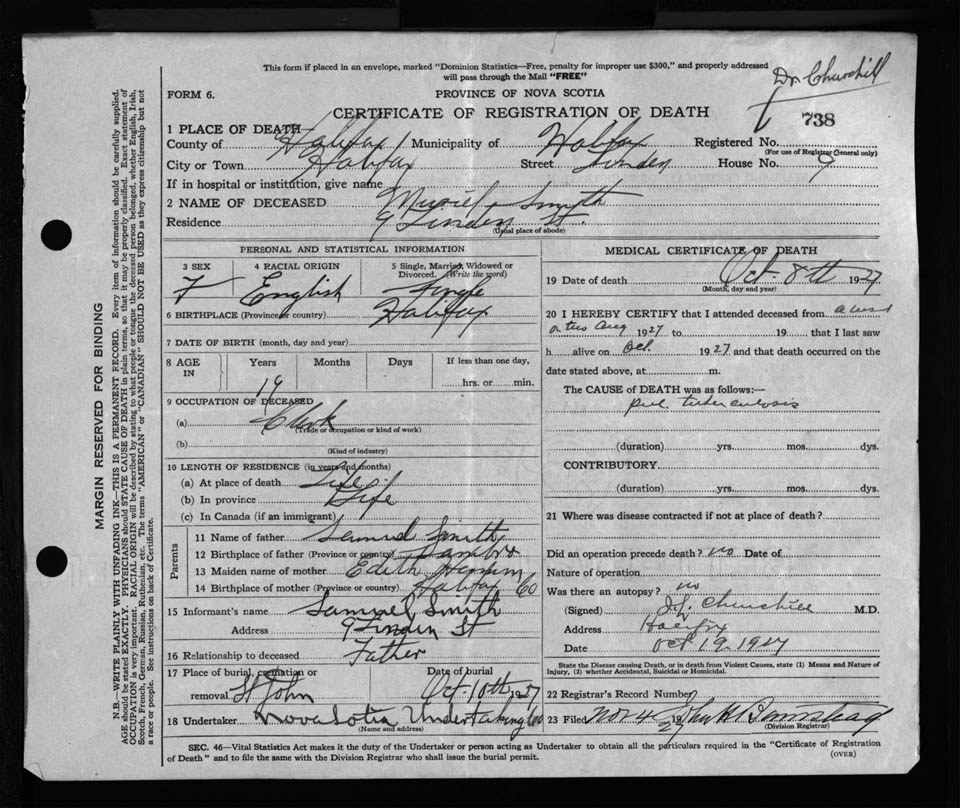 This form if placed in an envelope, marked "Dominion Statistics—Free, penalty for improper use $300," and properly addressed
will pass through the Mail "FREE"
Dr. Churchill
FORM 6. PROVINCE OF NOVA SCOTIA
CERTIFICATE OF REGISTRATION OF DEATH
738
1 PLACE OF DEATH—
County of Halifax Municipality of Halifax Registered No.
(For use of Registrar General only)
City or Town Halifax Street Linden House No. 9
If in hospital or institution, give name
2 NAME OF DECEASED Muriel Smith
Residence 9 Linden St.
(Usual place of abode)
PERSONAL AND STATISTICAL INFORMATION
3 SEX 4 RACIAL ORIGIN 5 Single, Married, Widowed or
Divorced. (Write the word)
F English Single
6 BIRTHPLACE (Province or country) Halifax
7 DATE OF BIRTH (month, day and year)
8 AGE IN Years Months Days If less than one day,
19 hrs. or min.
9 OCCUPATION OF DECEASED
(a) Clerk
(Trade or occupation or kind of work)
(b)
(Kind of industry)
10 LENGTH OF RESIDENCE (in years and months)
(a) At place of death Life
(b) In province Life
(c) In Canada (if an immigrant)
Parents
11 Name of father Samuel Smith
12 Birthplace of father (Province or country) Sambro
13 Maiden name of mother Edith
14 Birthplace of mother (Province or country) Halifax Co
15 Informant's name Samuel Smith
Address 9 Linden St
16 Relationship to deceased Father
17 Place of burial, cremation or Date of burial
removal St John Oct 10th 1927
18 Undertaker Nova Sotia Undertaking Co
(Name and address)
MEDICAL CERTIFICATE OF DEATH
19 Date of death Oct. 8th 1927
(Month, day and year)
20 I HEREBY CERTIFY that I attended deceased from
Aug 1927 to 19 that I last saw
h alive on Oct. 1927 and that death occurred on the
date stated above, at m.
The CAUSE OF DEATH was as follows:—
pul. tuberculosis
(duration) yrs. mos. dys.
CONTRIBUTORY
(duration) yrs. mos. dys.
21 Where was disease contracted if not at place of death?
Did an operation precede death? no Date of
Nature of operation
Was there an autopsy? no
(Signed) Churchill M.D.
Address Halifax
Date Oct 19 1927
State the Disease causing Death, or in death from Violent Causes, state (1) Means and Nature of
Injury, (2) whether Accidental, Suicidal or Homicidal.
22 Registrar's Record Number
23 Filed Nov 4 1927 John H Barnstead
(Division Registrar)
SEC. 46—Vital Statistics Act makes it the duty of the Undertaker or person acting as Undertaker to obtain all the particulars required in the "Certificate of Registration
of Death" and to file the same with the Division Registrar who shall issue the burial permit.
(OVER)
MARGIN RESERVED FOR BINDING
N.B.—WRITE PLAINLY WITH UNFADING INK—THIS IS A PERMANENT RECORD. Every item of information should be carefully supplied.
AGE should be stated EXACTLY. PHYSICIANS should STATE CAUSE OF DEATH in plain terms, so that it may be properly classified. Exact statement of
OCCUPATION is very important. RACIAL ORIGIN will be described by stating to what people or tongue the deceased person belonged, whether English, Irish,
Scotch, French, German, Russian, Ruthenian, etc. The terms "AMERICAN" or "CANADIAN" SHOULD NOT BE USED as they express citizenship but not
a race or people. See instructions on back of Certificate.